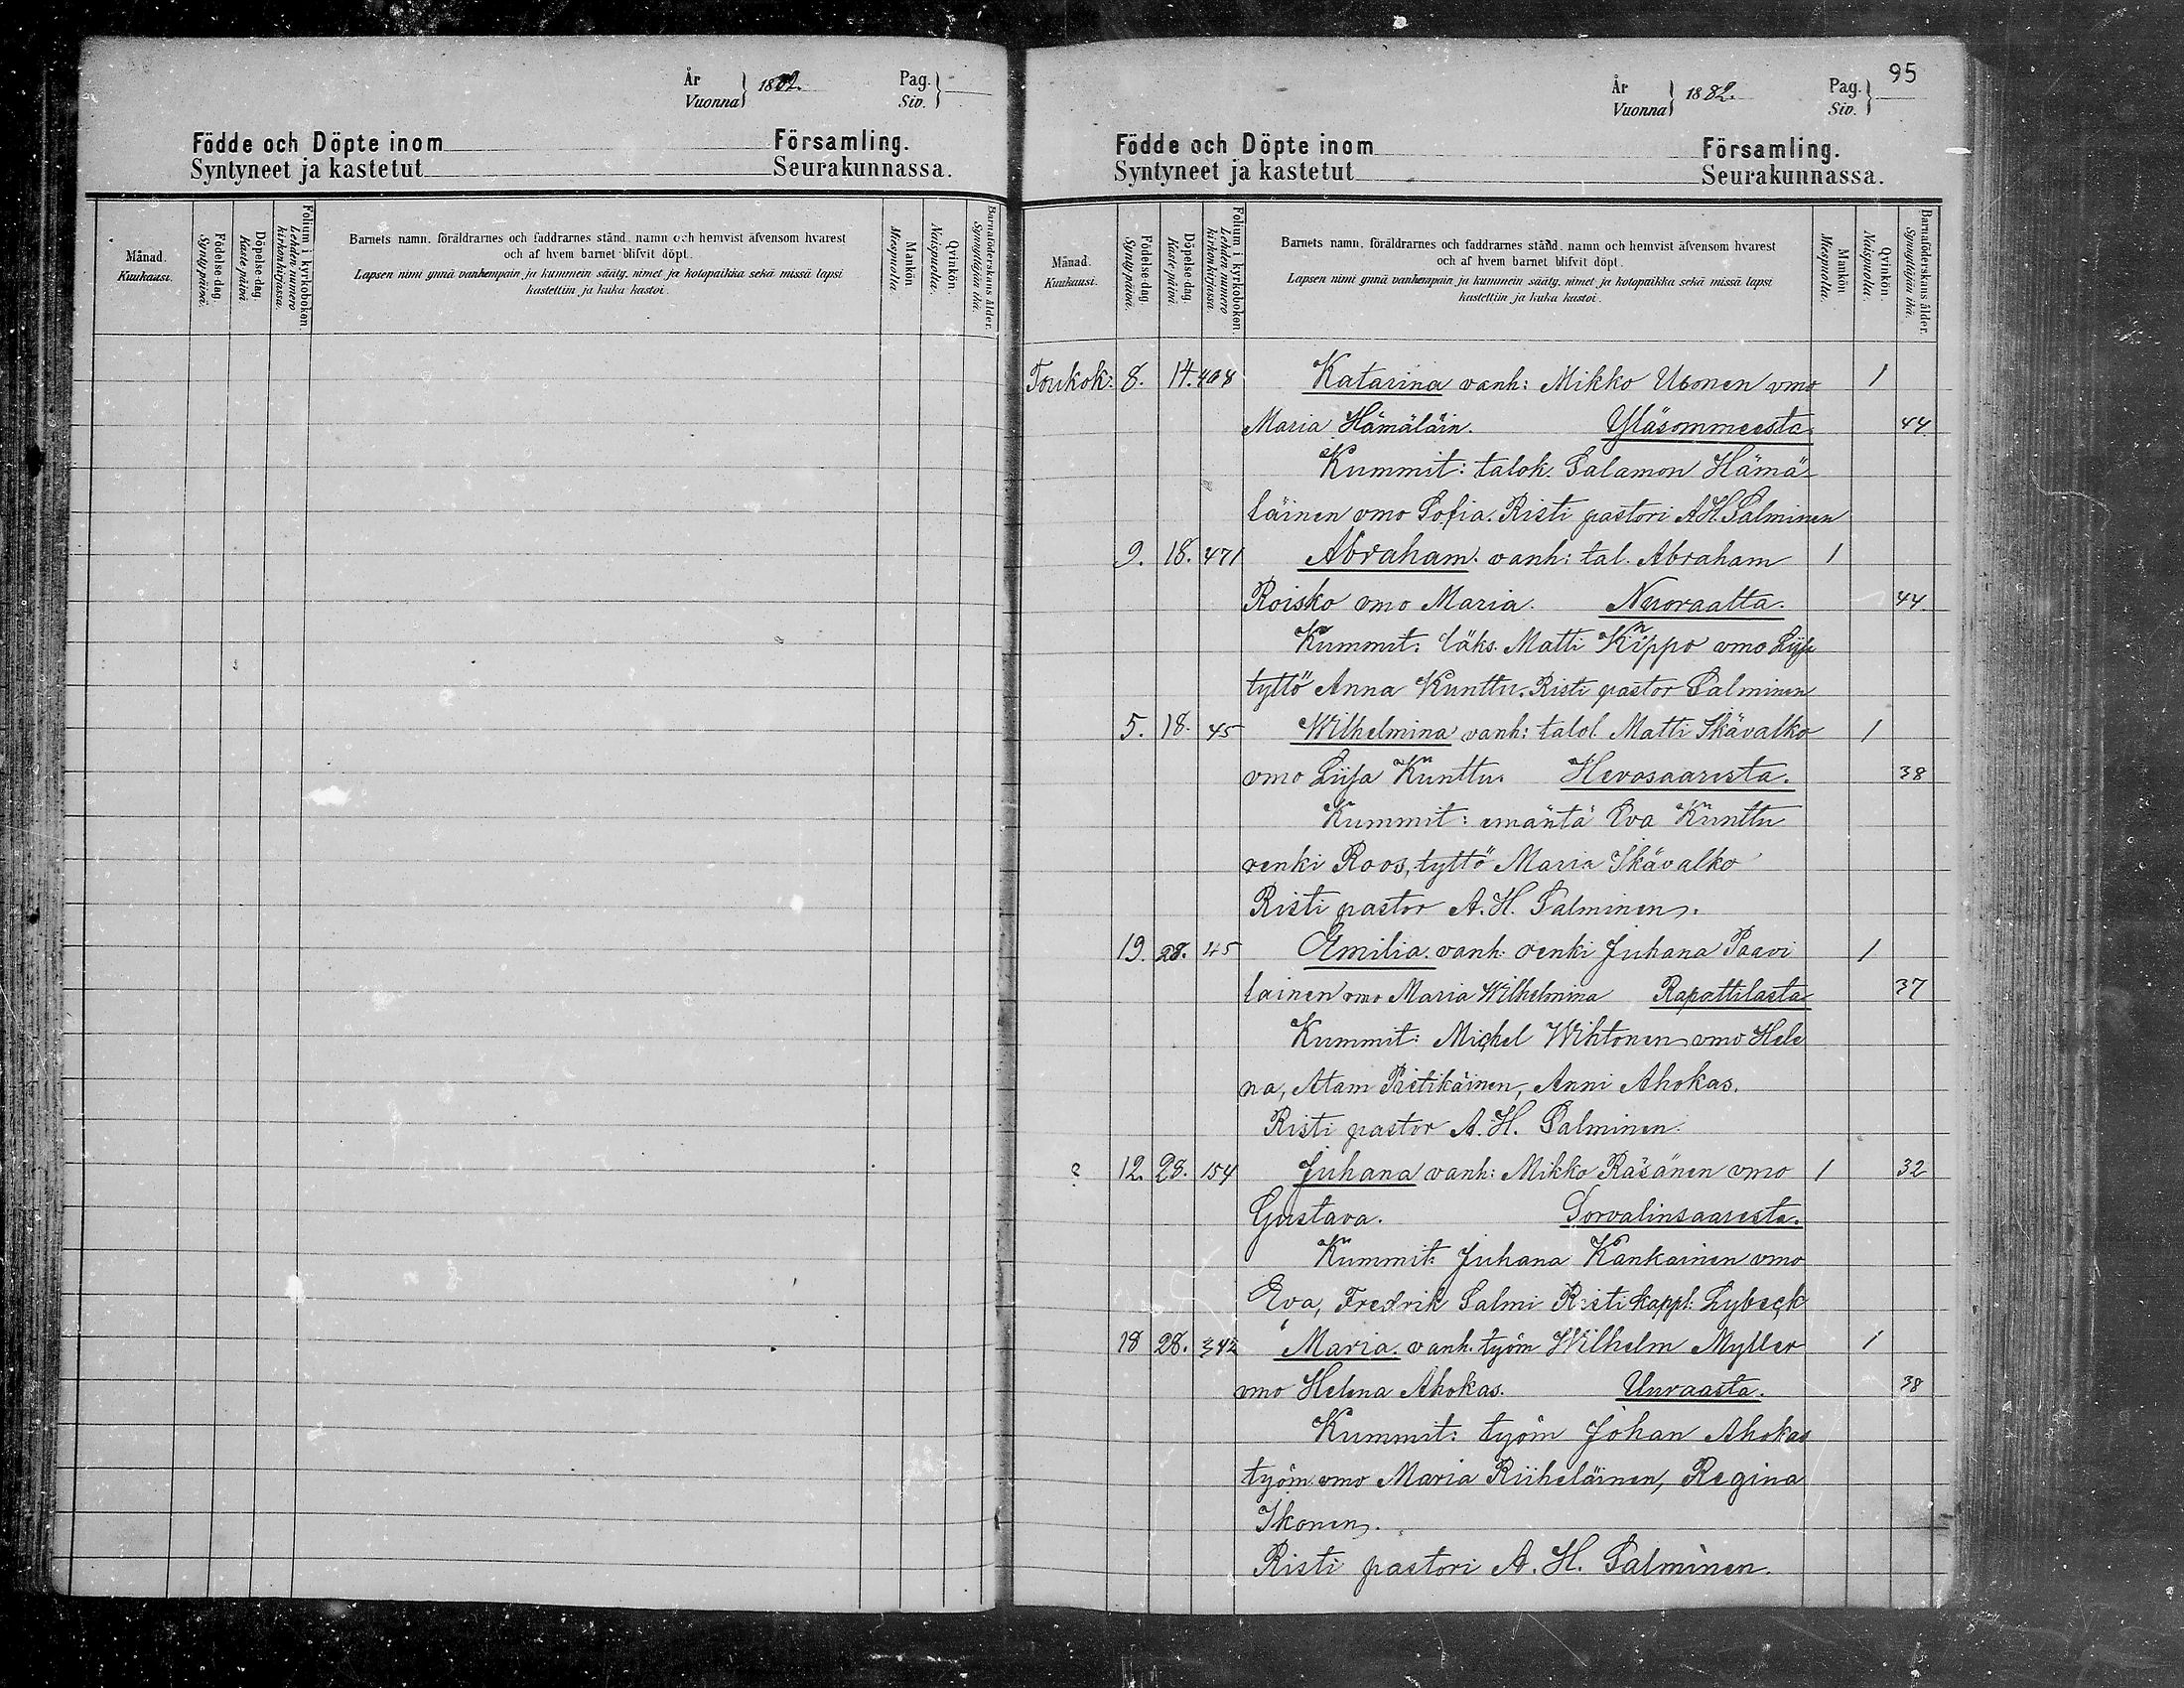 År
Vuonna } 1882. Pag.
Siv. }
Födde och Döpte inom Församling.
Syntyneet ja kastetut Seurakunnassa.
Månad.
Kuukausi.
Födelse-dag.
Synty-päivä.
Döpelse-dag.
Kaste-päivä.
Folium i kyrkoboken.
Lehden numero
kirkonkirjassa.
Barnets namn, föräldrarnes och faddrarnes stånd, namn och hemvist äfvensom hvarest
och af hvem barnet blifvit döpt.
Lapsen nimi ynnä vanhempain ja kummein sääty, nimet ja kotopaikka sekä missä lapsi
kastettiin ja kuka kastoi.
Mankön
Miespuolia.
Qvinkön
Naispuolia.
Barnaföderskans ålder.
Synnyttäjän ikä.
95
År
Vuonna } 1882. Pag.
Siv. }
Födde och Döpte inom Församling.
Syntyneet ja kastetut Seurakunnassa.
Månad.
Kuukausi.
Födelse-dag
Synty-päivä.
Döpelse-dag
Kaste-päivä.
Folium i kyrkoboken.
Lehden numero
kirkonkirjassa.
Barnets namn, föräldrarnes och faddrarnes stånd, namn och hemvist äfvensom hvarest
och af hvem barnet blifvit döpt.
Lapsen nimi ynnä vanhempain ja kummein sääty, nimet ja kotopaikka sekä missä lapsi
kastettiin ja kuka kastoi.
Mankön
Miespuolia.
Qvinkön.
Naispuolia.
Barnaföderskans ålder.
Synnyttäjän ikä.
Toukok: 8. 14. 408 Katarina vanh: Mikko Utonen vmo 1
Maria Hämäläin. Yläsommeesta. 44
Kummit: talok. Salamon Hämä-
läinen vmo Sofia. Risti pastori A H Salminen
9. 18. 471 Abraham. vanh: tal. Abraham 1
Roisko vmo Maria. Nuoraalta. 44.
Kummit: läks. Matti Kippo vmo Liisa
tyttö Anna Kunttu. Risti pastor Salminen
5. 18. 45 Wilhelmina vanh: talol. Matti Ikävalko 1
vmo Liisa Kunttu. Hevosaaresta. 38
Kummit: emäntä Eva Kunttu
renki Roos, tyttö Maria Ikävalko
Risti pastor A. H. Salminen.
19. 28. 45 Emilia. vanh: renki Juhana Paavi 1
lainen vmo Maria Wilhelmina Rapattilasta 37
Kummit: Michel Wihtonen vmo Hele
na, Atam Pietikäinen, Anni Ahokas.
Risti pastor A. H. Salminen.
? 12. 28. 154 Juhana vanh: Mikko Räsänen vmo 1 32
Gustava. Sorvalinsaaresta.
Kummit: Juhana Kankainen vmo
Eva, Fredrik Salmi Risti kappl: Lybeck
18 28. 342 Maria. vanh. työm Wilhelm Myller 1
vmo Helena Ahokas. Uuraasta. 38
Kummit: työm Johan Ahokas
työm vmo Maria Riiheläinen, Regina
Ikonen.
Risti pastori A. H. Salminen.